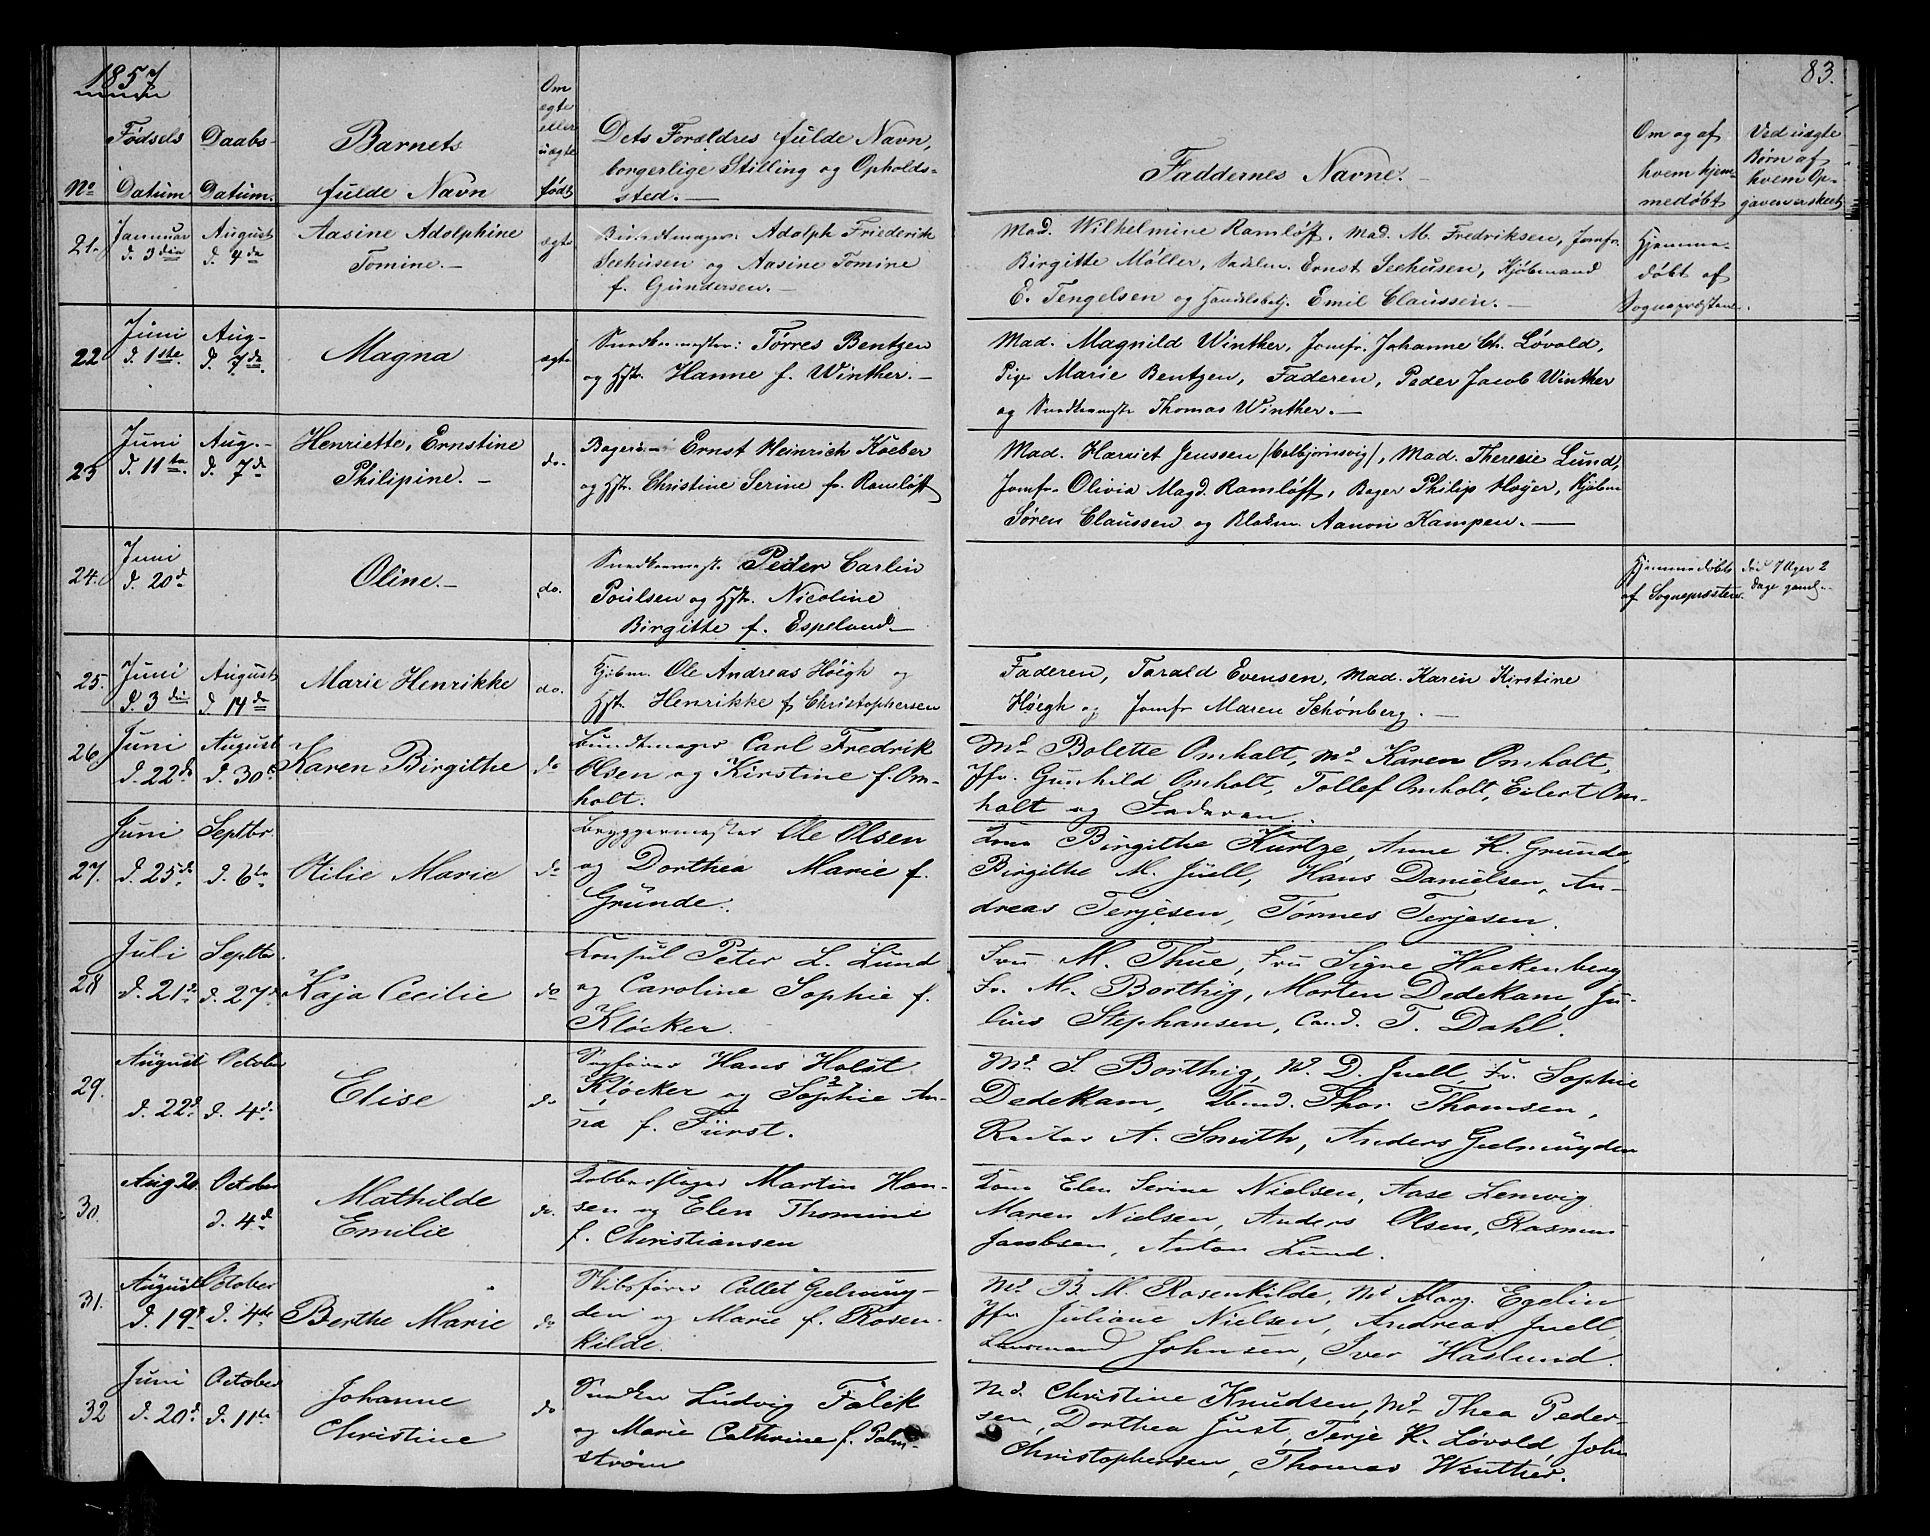 1857
83.
No
Fødsels
Datum
Daabs-
Datum.
Barnets
fulde Navn
Om
egte
eller
uegte
født
Dets Forældres fulde Navn,
borgerlige Stilling og Opholds-
sted.—
Faddernes Navne.—
Om og af
hvem hjem-
medøbt
Ved uægte
Børn af
hvem Op-
gaven er skeet
21.
Januar
d. 3die
August
d. 4de
Aasine Adolphine
Tomine.—
egte
Bundtmager: Adolph Friederik
Seehusen og Aasine Tomine
f. Gundersen.—
Mad. Wilhelmine Ramløff, Mad. M. Fredriksen, Jomfr.
Birgitte Møller, Ernst Seehusen, Kjøbmand
E. Tengelsen og Handelsbetj. Emil Claussen.—
Hjemme-
døbt af
Sognepræsten.
22
Juni
d. 1ste
Aug-
d. 7de
Magna
egte
Snedkermester: Torres Bentzen
og Hstr. Hanne f. Winther.—
Mad. Magnild Winther, Jomfr. Johanne Ch. Løvold,
Pige Marie Bentzen, Faderen, Peder Jacob Winther
og Snedkermestr Thomas Winther.—
23
Juni
d. 11te
Aug.-
d. 7de
Henriette, Ernstine
Philipine.—
do.
Bager:- Ernst Heinrich Koeber
og Hstr. Christine Serine fr. Ramløff
Mad. Harriet Jenssen /Colbjørnsvig/, Mad. Therecie Lund,
Jomfr. Olivia Magd. Ramløff, Bager Philip Høyer, Kjøbm
Søren Claussen og Blokm. Aanon Kampen.—
24.
Juni
d. 20de
Oline.—
do.
Snedkermest. Peder Carlin
Poulsen og Hstr. Nicoline
Birgitte f. Espeland—
Hjemmedøbt
af Sognepræsten.
død 7 Uger 2
Dage gaml.—
25.
Juni
d. 3die
August
d. 14de
Marie Henrikke
do.
Kjøbm. Ole Andreas Høegh og
Hstr. Henrikke f. Christophersen
Faderen, Tarald Evensen, Mad. Karen Kirstine
Høegh og Jomfr Maren Schönberg.—
26.
Juni
d. 22de
August
d. 30te
Karen Birgithe
do
Bundtmager Carl Fredrik
Olsen og Kirstine f. Om-
holt.
Md. Bolette Omholt, Md. Karen Omholt,
Jfr. Gunhild Omholt, Tollef Omholt, Eilert Om-
holt og Faderen.
27.
Juni
d. 25de
Septbr.
d. 6te
Otilie Marie
do
Bryggermester Ole Olsen
og Dorthea Marie f.
Grunde.
Kone Birgithe Kurtze, Anne K. Grunde,
Birgithe M. Juell, Hans Danielsen, An-
dreas Terjesen, Tønnes Terjesen.
28
Juli
d. 21de
Septbr
d. 27de
Kaja Cecilie
do
Konsul Peter L. Lund
og Caroline Sophie f.
Kløcker.
Fru M. Thue, Fru Signe Hackenberg
Fr. M. Borthig, Morten Dedekam, Ju-
lius Stephansen, Cand. T. Dahl.
29.
August
d. 22de
October
d. 4de
Elise
do
Hans Holst
Kløcker og Sophie An-
na f. Fürst.
Md. S. Borthig, Md. D. Juell, Fr. Sophie
Dedekam, Thor Thomsen,
A. Smith, Anders Gjelmuyden
30.
Aug 20.
October
d. 4de
Mathilde
Emilie
do.
Kobberslager Martin Han-
sen og Elen Thomine
f. Christiansen
Kone Elen Serine Nielsen, Aase Lemvig
Maren Nielsen, Anders Olsen, Rasmus
Jacobsen, Anton Lund.
31.
August
d. 19de
October
d. 4de
Berthe Marie
do
Skibsfører Collet Gjelmuy-
den og Marie f. Rosen-
kilde.
Md. B. M. Rosenkilde, Md. Marg. Egelin
Jfr. Juliane Nielsen, Andreas Juell,
Johnsen, Iver Haslund.
32
Juni
d. 20de
October
d. 11te
Johanne
Christine
do
Snedker Ludvig Falck
og Marie Cathrine f. Palm-
strøm
Md. Christine Knudsen, Md. Thea Peder-
sen, Dorthea Just, Terje K. Løvold, John
Christophersen, Thomas Winther.